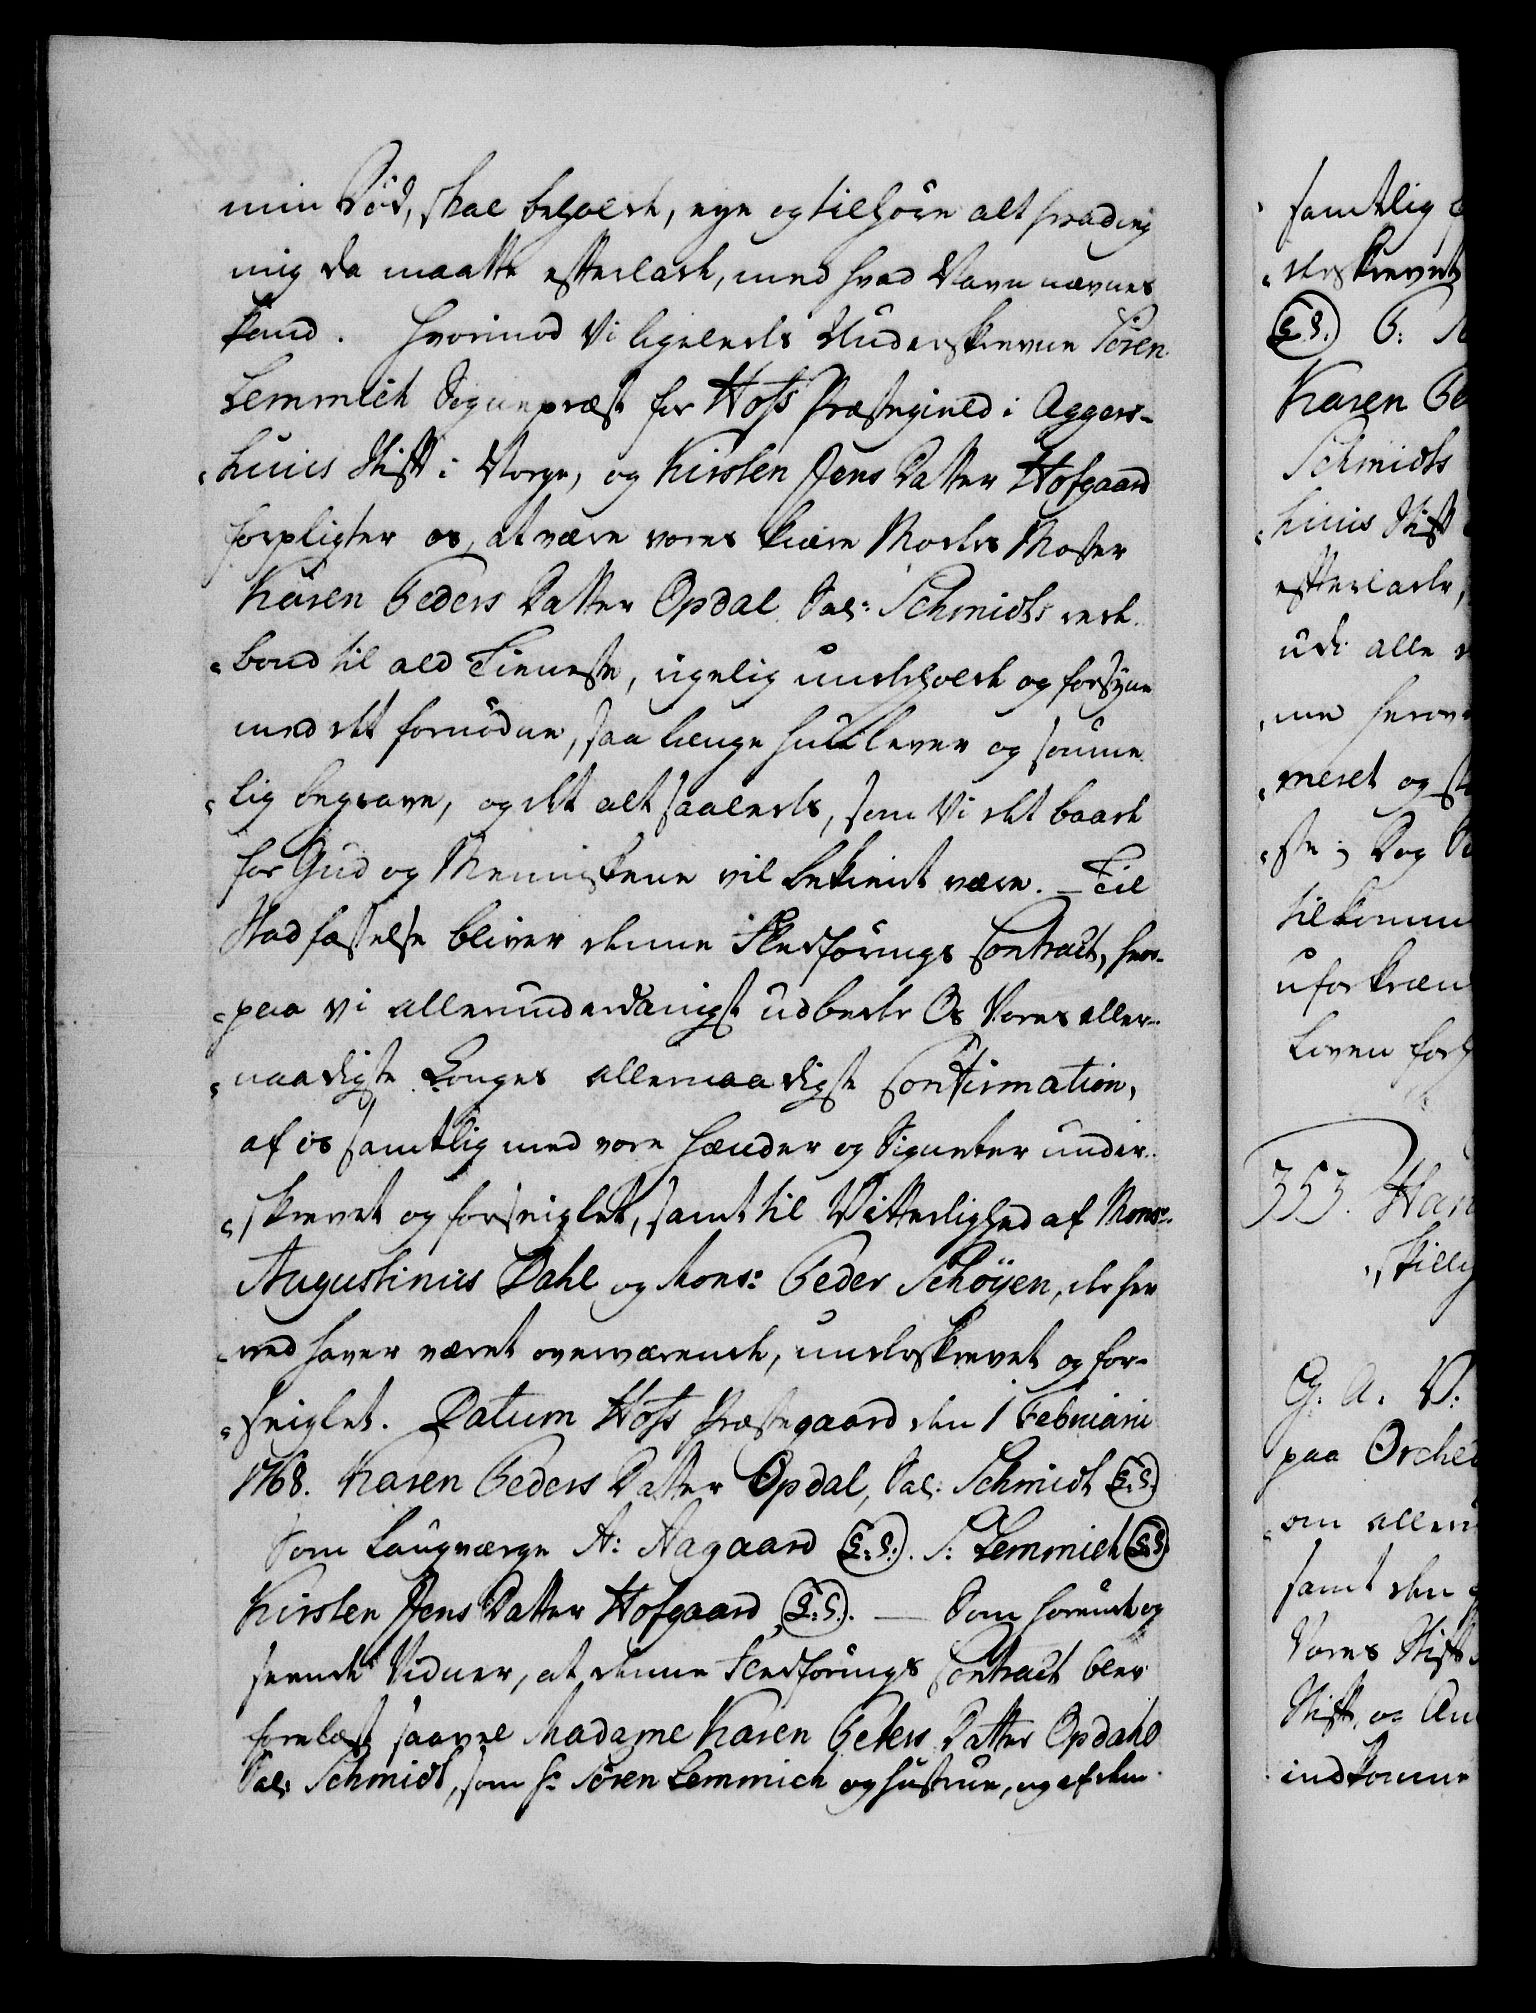 min Död, skal beholde, eye og tilhöre alt hvad ieg
mig da maatte efterlade, med hvad Navn nævnes
kand. Hvorimod Vi ligeleds Underskrevne Sören
Lemmich Sognepræst for Hofs Præstegield i Aggers-
huus Stift i Norge, og Kirsten Jens Datter Hofgaard
forpligter os, at være vores kiære Moders Moster
Karen Peders Datter Opdal Sal: Schmidts rede-
bond til ald Tieneste, rigelig underholde og forsyne
med det fornödne, saa længe hun lever og sömme-
lig begrave, og det alt saaleds, som Vi det baade
for Gud og Menniskene vil bekiendt være. – Til
Stadfæstelse bliver denne Fledförings Contract, hvor-
paa vi allerunderdanigst udbede Os Vores aller-
naadigste Konges allernaadigste Confirmation,
af os samtlig med vore Hænder og Signeter under-
skrevet og forseiglet, samt til Vitterlighed af Mons:
Augustinus Dahl og Mons: Peder Schöyen, der her
ved haver været overværende, underskrevet og for-
seiglet. Datum Hofs Præstegaard den 1 Februarii
1768. Karen Peders Datter Opdal, Sal: Schmidt (L.S.)
Som Laugværge A: Aagaard (L:S:). S: Lemmich (L.S)
Kirsten Jens Datter Hofgaard (L:S:). — Som hörende og
seende Vidner, at denne Fledförings Contract blev
forelæst saavel Madame Karen Peders Datter Opdahl
Sal: Schmidt, som Hr Sören Lemmich og Hustrue, og af dem
samtlig
derskrevet
(L.S.) P:
Karen Pe
Schmidts
huus Stift
efterlade,
udi alle
me herov
meret og st
ste; Dog
tilkomm
uforkræn
Loven for
353.
G. A. V:
paa Orche
om aller
samt den
Vores Stift
Stift, og
indkomne